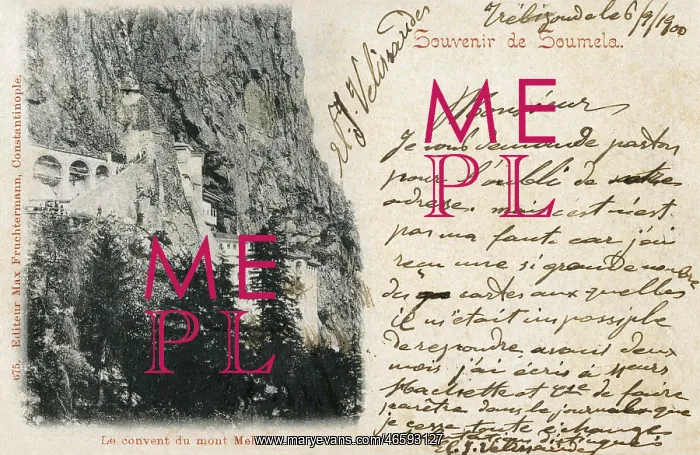 Trébizonde le 6/9/1900
Souvenir de Soumela.
Monsieur
Je vous demande pardon
pour l'oubli de votres
adresse. mais c'est n'est
pas ma faute car j'ai
reçu une si grande nombre
des cartes aux quelles
il m'était impossible
de repondre. avant deux
mois j'ai écris à Msieurs
et de faire
paraître dans le journal que
je cesse toute échange
distingués
675. Editeur Max Fruchtermann, Constantinople.
Le convent du mont Mel
ME
PL
ME
PL
www.maryevans.com/46593127